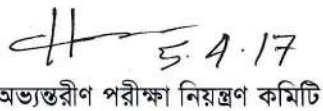 5.4.17
অভ্যন্তরীণ পরীক্ষা নিয়ন্ত্রণ কমিটি